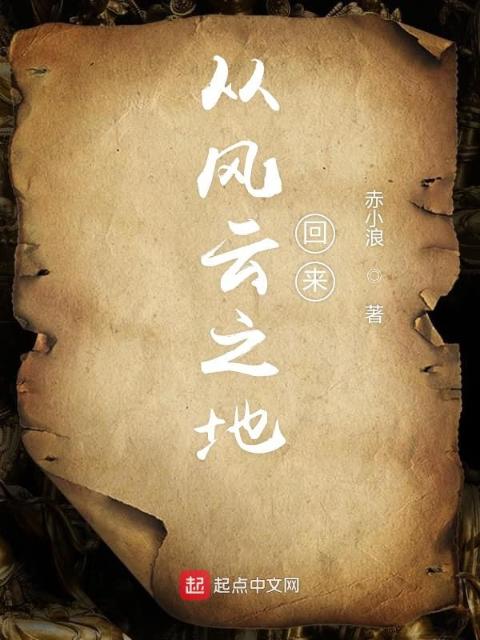 从风云之地
回来
赤小浪 ◎ 著
起 起点中文网